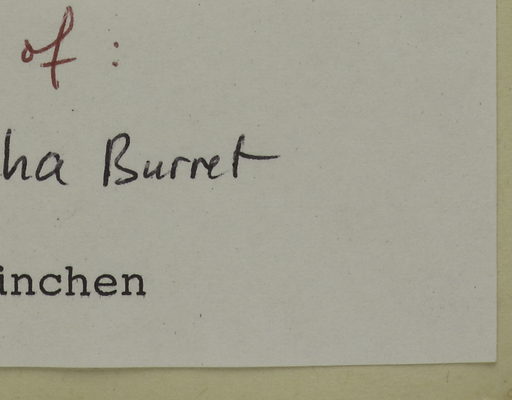 of :
ha Burret
inchen